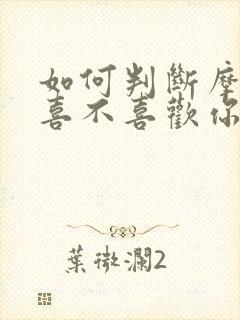 如何判斷摩
喜不喜歡你
葉微瀾2